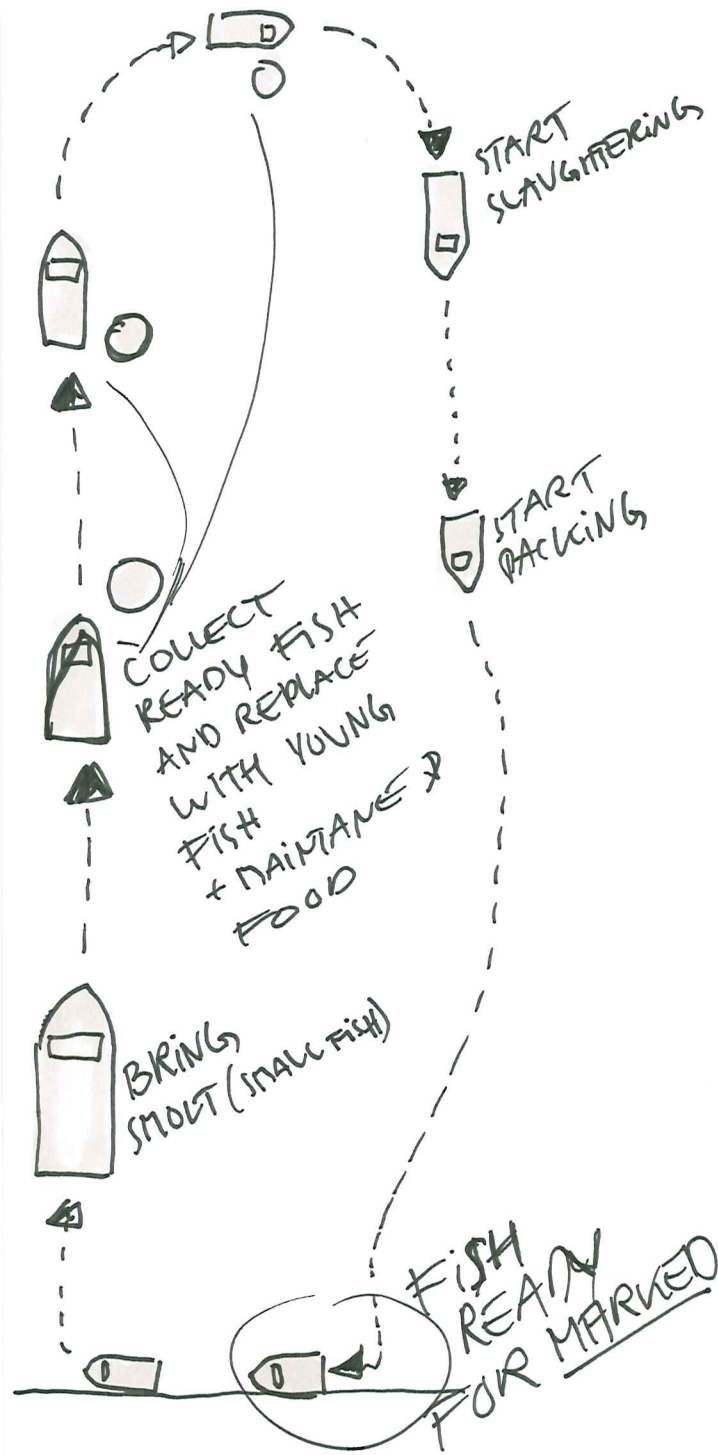 START
SLAUGHTERING
START
PACKING
COLLECT
READY FISH
AND REPLACE
WITH YOUNG
FISH
+ MAINTANE
FOOD
BRING
SMOLT (SMALL FISH)
FISH
READY
FOR MARKED